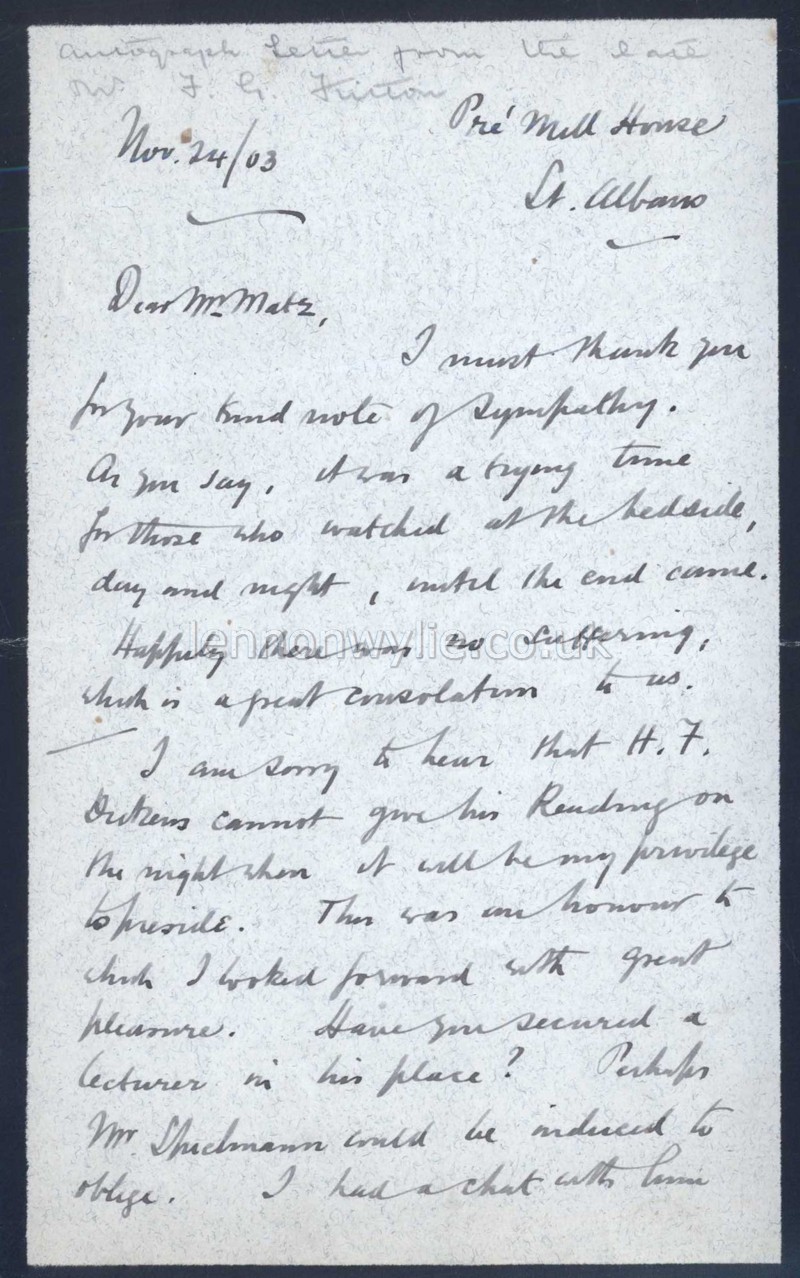 Autograph Letter from the late
Mr F. G. Kitton
Pré Mill House
Nov. 24/03
St. Albans
Dear Mr Matz,
I must thank you
for your kind note of sympathy.
As you say, it was a trying time
for those who watched at the bedside,
day and night, until the end came.
Happily there was no suffering,
which is a great consolation to us.
I am sorry to hear that H. F.
Dickens cannot give his Reading on
the night when it will be my privilege
to preside. This was an honour to
which I looked forward with great
pleasure. Have you secured a
lecturer in his place? Perhaps
Mr Spielmann could be induced to
oblige. I had a chat with him
lennonwylie.co.uk